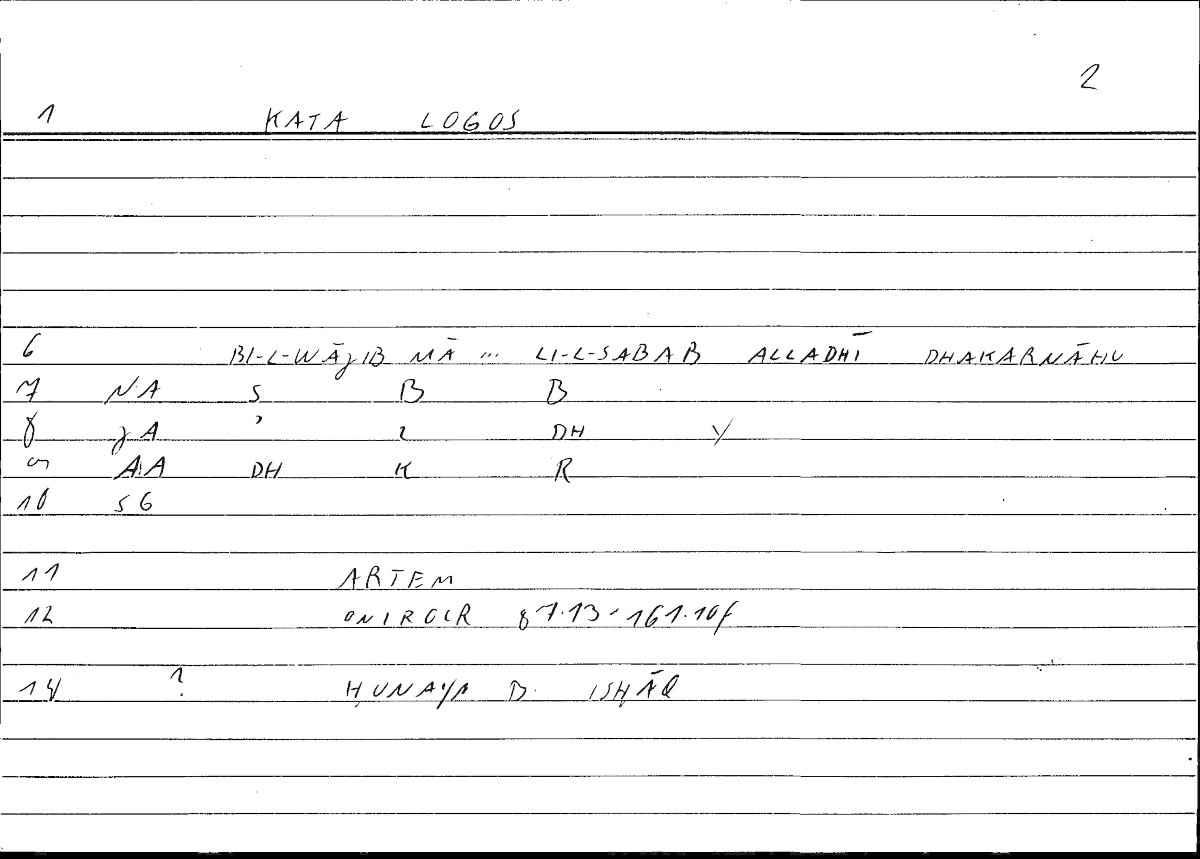 2
1 KATA LOGOS
6 BI-L-WĀJIB MĀ ... LI-L-SABAB ALLADHĪ DHAKARNĀHU
7 NA S B B
8 JA ʾ L DH Y
9 AA DH K R
10 SG
11 ARTEM
12 ONIROCR 87.13-161.10f
14 ? ḤUNAYN B. ISḤĀQ